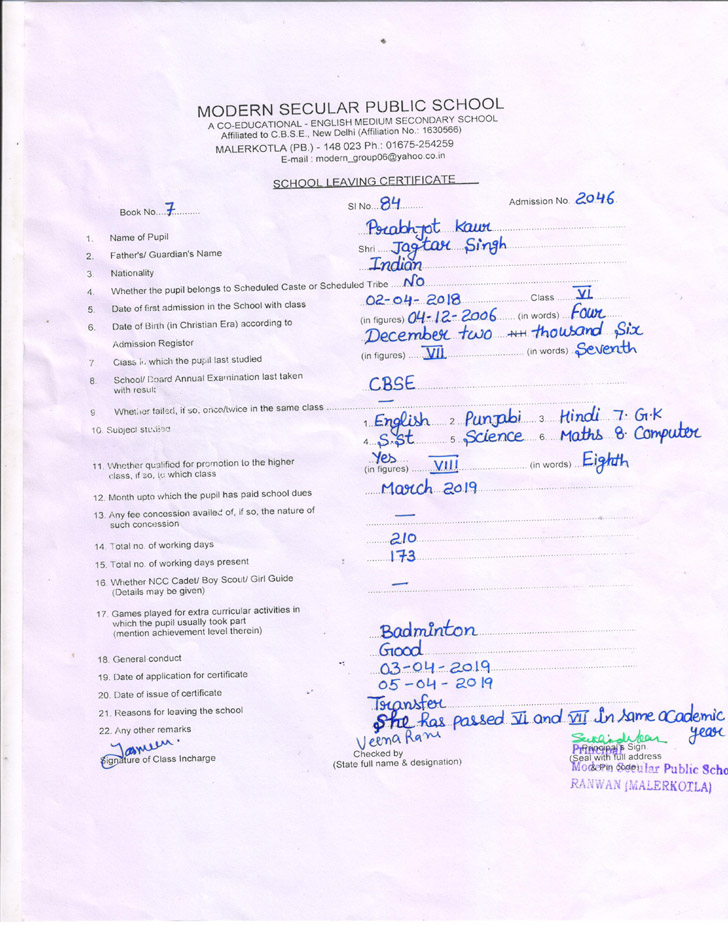 MODERN SECULAR PUBLIC SCHOOL
A CO-EDUCATIONAL - ENGLISH MEDIUM SECONDARY SCHOOL
Affiliated to C.B.S.E., New Delhi (Affiliation No.: 1630566)
MALERKOTLA (PB.) - 148 023 Ph.: 01675-254259
E-mail : modern_group06@yahoo.co.in
SCHOOL LEAVING CERTIFICATE
Book No....7.......... Sl No...84........ Admission No. 2046
1. Name of Pupil Prabhjot Kaur
2. Father's/ Guardian's Name Shri ....Jagtar Singh
3. Nationality Indian
4. Whether the pupil belongs to Scheduled Caste or Scheduled Tribe ....No
5. Date of first admission in the School with class 02-04-2018 Class ....VI
6. Date of Birth (in Christian Era) according to (in figures) 04-12-2006 (in words) Four
Admission Register December two thousand Six
7 Class in which the pupil last studied (in figures) ....VII (in words) Seventh
8. School/ Board Annual Examination last taken
with result CBSE
9 Whether failed, if so, once/twice in the same class —
10. Subject studied 1. English 2. Punjabi 3. Hindi 7. G.K
4. S.St 5. Science 6. Maths 8. Computer
11. Whether qualified for promotion to the higher Yes
class, if so, to which class (in figures) VIII (in words) Eighth
12. Month upto which the pupil has paid school dues March 2019
13. Any fee concession availed of, if so, the nature of
such concession —
14. Total no. of working days 210
15. Total no. of working days present 173
16. Whether NCC Cadet/ Boy Scout/ Girl Guide —
(Details may be given)
17. Games played for extra curricular activities in
which the pupil usually took part
(mention achievement level therein) Badminton
18. General conduct Good
19. Date of application for certificate 03-04-2019
20. Date of issue of certificate 05-04-2019
21. Reasons for leaving the school Transfer
22. Any other remarks She has passed VI and VII in same academic
year
Jasmeen. Veena Rani
Signature of Class Incharge Checked by Principal's Sign
(State full name & designation) (Seal with full address
& Pin Code)
Principal
Modern Secular Public Scho
RANWAN (MALERKOTLA)